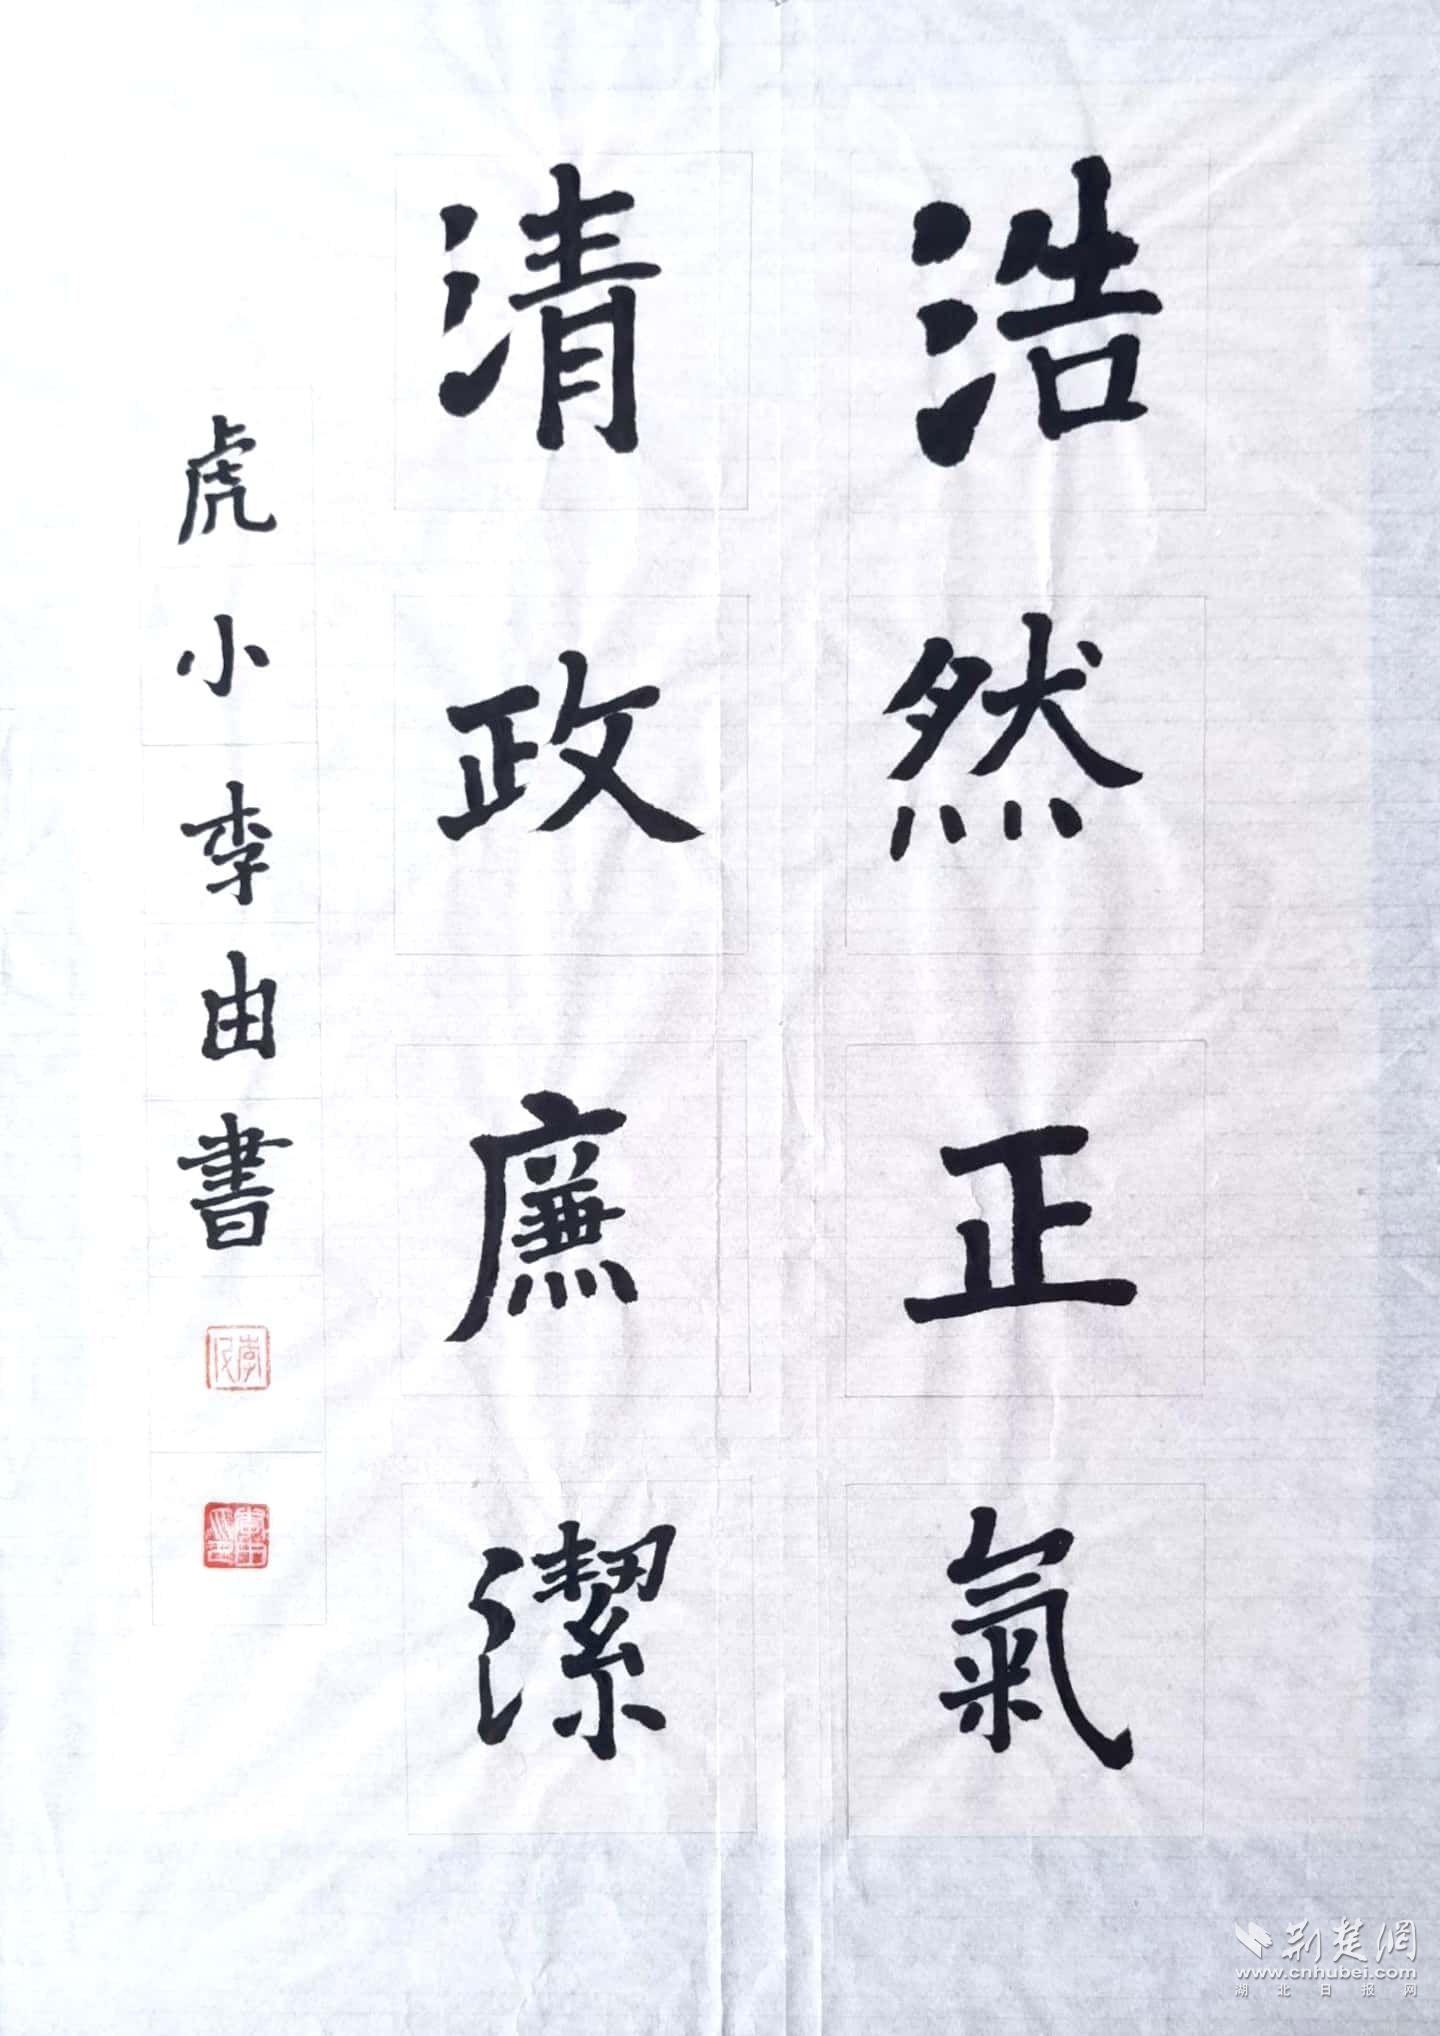 浩然正氣
清政廉潔
虎小李由書
荆楚网
www.cnhubei.com
湖北日报网